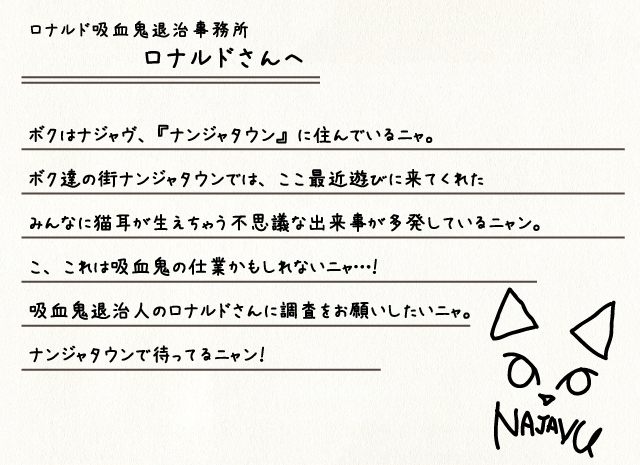 ロナルド吸血鬼退治事務所
ロナルドさんへ
ボクはナジャヴ、『ナンジャタウン』に住んでいるニャ。
ボク達の街ナンジャタウンでは、ここ最近遊びに来てくれた
みんなに猫耳が生えちゃう不思議な出来事が多発しているニャン。
こ、これは吸血鬼の仕業かもしれないニャ…!
吸血鬼退治人のロナルドさんに調査をお願いしたいニャ。
ナンジャタウンで待ってるニャン!
NAJAVU